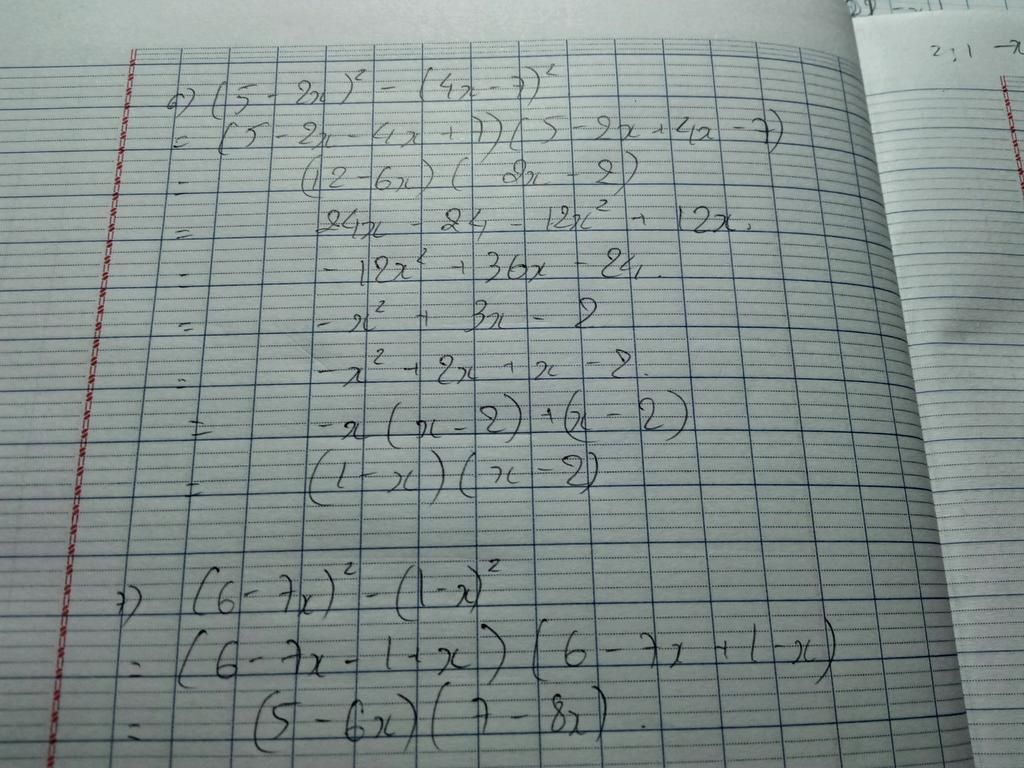 6) (5 - 2x)² - (4x - 7)²
= (5 - 2x - 4x + 7) (5 - 2x + 4x - 7)
= (12 - 6x) ( 2x - 2)
= 24x - 24 - 12x² + 12x.
= - 12x² + 36x - 24.
= - x² + 3x - 2
= - x² + 2x + x - 2.
= - x (x - 2) + (x - 2)
= (1 - x) (x - 2)
7) (6 - 7x)² - (1 - x)²
= (6 - 7x - 1 + x) (6 - 7x + 1 - x)
= (5 - 6x) (7 - 8x).
2 ; 1